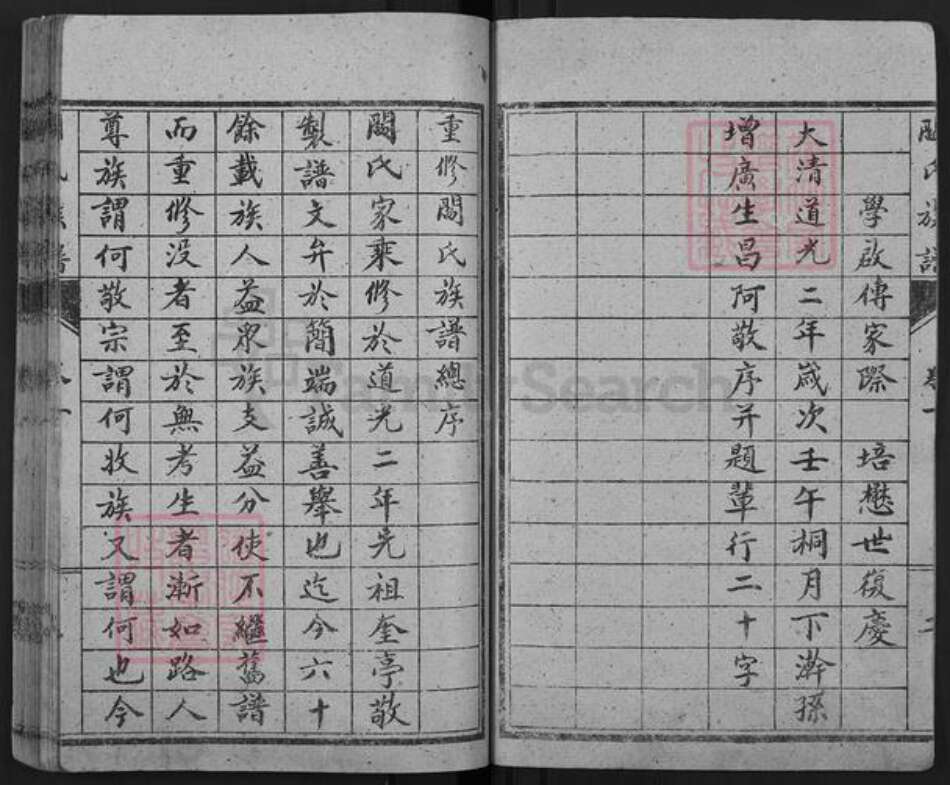 學啟傳家際 培懋世復慶
大清道光二年歲次壬午桐月下澣孫
增廣生昌阿敬序并題輩行二十字
重修閻氏族譜總序
閻氏家乘修於道光二年先祖奎亭敬
製譜文弁於簡端誠善舉也迄今六十
餘載族人益眾族支益分使不繼舊譜
而重修没者至於無考生者漸如路人
尊族謂何敬宗謂何收族又謂何也今
FamilySearch